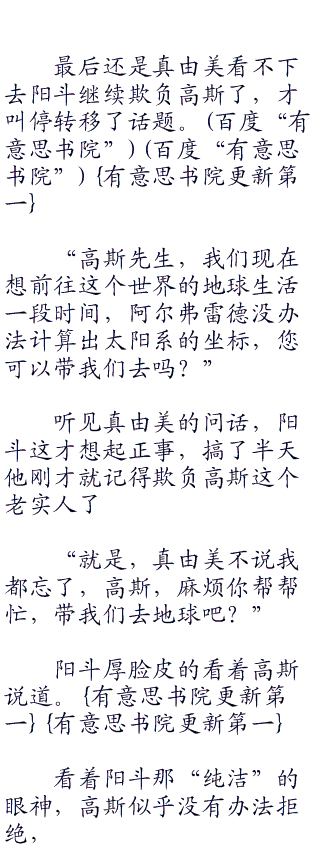 最后还是真由美看不下
去阳斗继续欺负高斯了，才
叫停转移了话题。(百度“有
意思书院”)(百度“有意思
书院”){有意思书院更新第
一}
“高斯先生，我们现在
想前往这个世界的地球生活
一段时间，阿尔弗雷德没办
法计算出太阳系的坐标，您
可以带我们去吗？”
听见真由美的问话，阳
斗这才想起正事，搞了半天
他刚才就记得欺负高斯这个
老实人了
“就是，真由美不说我
都忘了，高斯，麻烦你帮帮
忙，带我们去地球吧？”
阳斗厚脸皮的看着高斯
说道。{有意思书院更新第
一}{有意思书院更新第一}
看着阳斗那“纯洁”的
眼神，高斯似乎没有办法拒
绝，